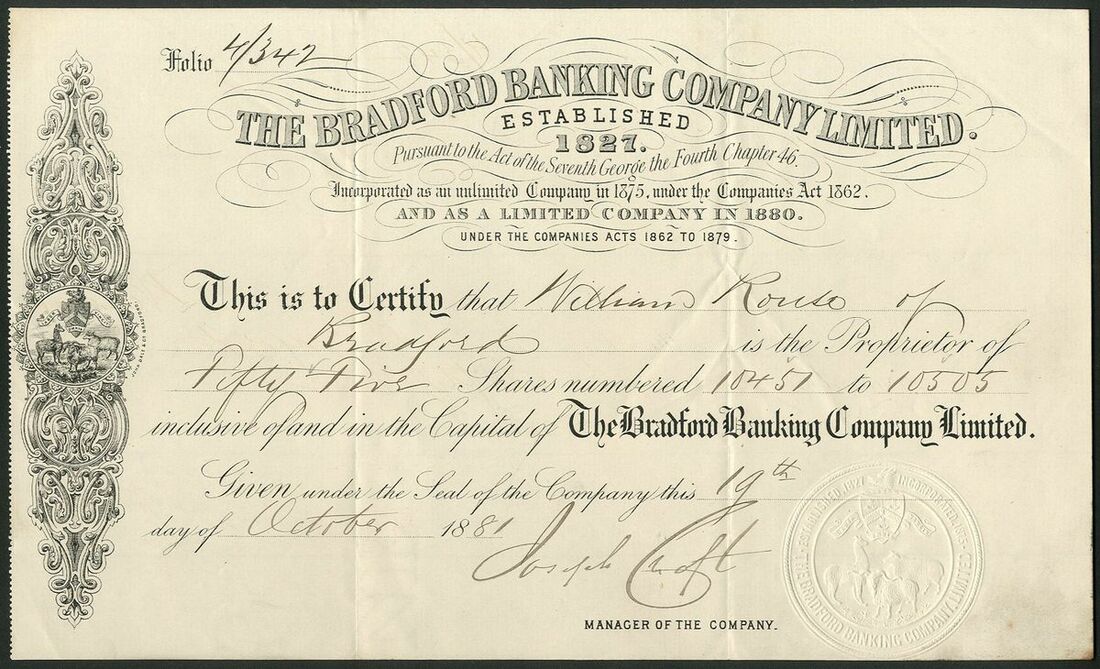 Folio 4/342
THE BRADFORD BANKING COMPANY LIMITED.
ESTABLISHED
1827.
Pursuant to the Act of the Seventh George the Fourth Chapter 46,
Incorporated as an unlimited Company in 1875, under the Companies Act 1862.
AND AS A LIMITED COMPANY IN 1880.
UNDER THE COMPANIES ACTS 1862 TO 1879.
This is to Certify that William Rouse of
Bradford is the Proprietor of
Fifty Five Shares numbered 10451 to 10505
inclusive of and in the Capital of The Bradford Banking Company Limited.
Given under the Seal of the Company this 19th
day of October 1881
Joseph Croft
MANAGER OF THE COMPANY.
THE BRADFORD BANKING COMPANY LIMITED